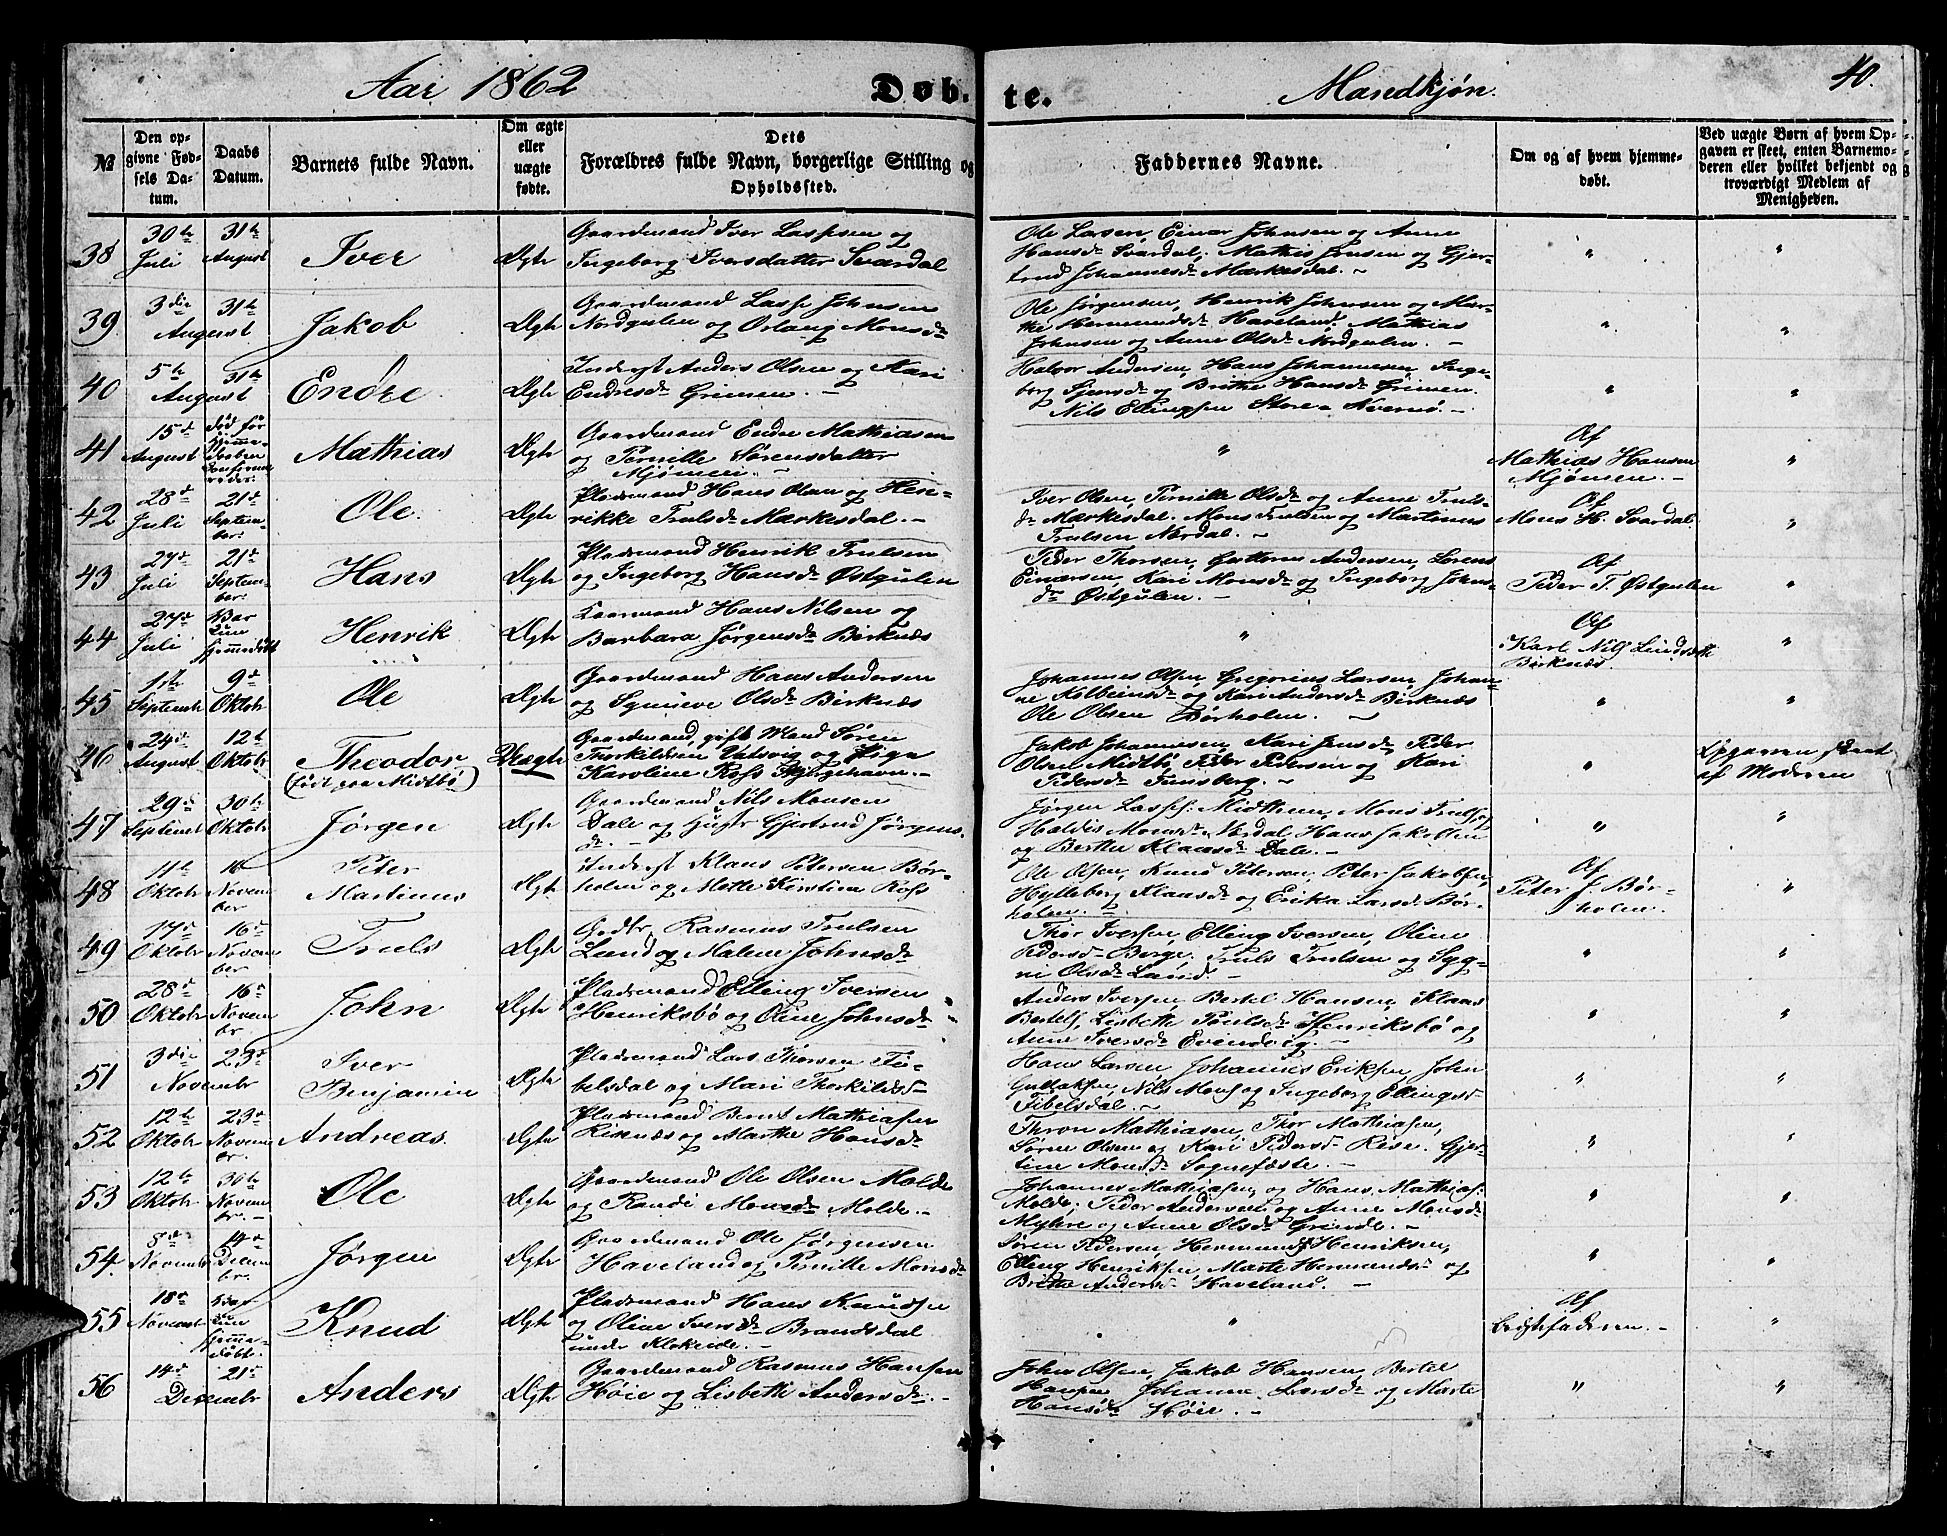 Aar 1862
Døb-
te.
Mandkjøn.
40.
№
Den op-
givne Fød-
sels Da-
tum.
Daabs
Datum.
Barnets fulde Navn.
Om ægte
eller
uægte
fødte.
Dets
Forældres fulde Navn, borgerlige Stilling og
Opholdssted.
Faddernes Navne.
Om og af hvem hjemme-
døbt.
Ved uægte Børn af hvem Op-
gaven er skeet, enten Barnemo-
deren eller hvilket bekjendt og
troværdigt Medlem af
Menigheden.
38
30te Juli
31te August
Iver
Ægte
Gaardmand Iver Lassesen og
Ingeborg Iversdatter Svardal
Ole Larsen, Einar Johnsen og Anne
Hansdr Svardal, Mathis Jensen og Gjer-
trud Johannesdr Mærkesdal. ~
39
3die August
31te
Jakob
Ægte
Gaardmand Lasse Johnsen
Nordgulen og Monsdr
Ole Jørgensen, Henrik Johnsen og Mar-
the Hermundsdr Haveland, Mathias
Johnsen og Anne Olsdr Nordgulen. -
40
5te August
31te
Endre
Ægte
Inderst Anders Olsen og Kari
Endresdr Grimen. -
Halvor Andersen, Hans Johannesen, Inge-
borg og Brithe Hansdr Grimen.
Nils Ellingsen Store
41
15de August
død før
Hjemme-
daaben
Mathias
Ægte
Gaardmand Endre Mathiasen
og Pernille Sørensdatter
Mjømen. ~
Af
Mathias Hansen
Mjømen. -
42
28de Juli
21de Septem-
ber:
Ole
Ægte
Pladsmand Hans Olsen og Hen-
rikke Trulsdr Mærkesdal. -
Iver Olsen, Pernille Olsdr og Anne Truls-
dr Mærkesdal. Mons Trulsen og Martinus
Trulsen Nordal. -
Af
Mons H. Svardal
43
27de Juli
21de Septem-
ber:
Hans
Ægte
Pladsmand Henrik Trulsen
og Ingeborg Hansdr Østgulen
Peder Thorsen, Guttorm Andersen, Sørens
Einarsen, Kari Monsdr og Ingeborg Johns-
dr Østgulen. -
Af
Peder T. Østgulen
44
27de Juli
Bar
kun
hjemmedøbt
Henrik
Ægte
Hans Nilsen og
Barbara Jørgensdr Birknæs
Af
Karl Nils
Birknæs
45
1ste Septembr
9de Oktobr
Ole
Ægte
Gaardmand Hans Andersen
og Olsdr Birknæs
Johannes Olsen, Gregorius Larsen, Johan-
ne Kolbeinsdr og Kari Andersdr Birknæs
Ole Olsen Børholen. ~
46
24de August
12te Oktobr
Theodor
(født paa Midtbø)
Uægte
Gaardmand, gift Mand Søren
Thorkildsen og Pige
Karoline Ross -
Jakob Johannesen, Kari Jensdr, Peder
Olsen Midtbø, Peder Pedersen og Kari
Pedersdr ~
Opgaven skeet
af Moderen
47
29de Septembr
30te Oktobr
Jørgen
Ægte
Gaardmand Nils Monsen
Dale og Hustr Gjertrud Jørgens-
dr. -
Jørgen Lasses: Midthun, Mons Truls og
Haldis Monsdr Nordal, Hans Jakobsen
og Berthe Klausdr Dale. -
48
11te Oktobr
16 Novem-
ber
Peter
Martinus
Ægte
Inderst Klaus Petersen Bør-
holen og Mette Kirstine Ross
Ole Olsen, Knud Petersen, Peter Jakobsen,
Hylleborg Klausdr og Erika Larsd. Bør-
holen. -
Af
Peter J. Bør-
holen.
49
17de Oktobr
16de Novem-
ber
Truls
Ægte
Godbr Rasmus Trulsen
Land og Malene Johnsdr
Thor Iversen, Elling Iversen, Oline
Pedersdr Berge, Truls Trulsen og Syg-
ni Olsdr Land. -
50
28de Oktobr
16de Novem-
br
John
Ægte
Pladsmand Elling Iversen
Henriksbø og Oline Johnsdr -
Anders Iversen, Bertel Hansen, Klaus
Bertels, Lisbeth Poulsdr Henriksbø og
Anne Iversdr Evendvig. -
51
3die Novembr
23de
Iver
Benjamin
Ægte
Pladsmand Lars Thorsen Ti-
belsdal og Mari Thorkildsd-
Hans Larsen, Johannes Eriksen, John
Gullaksen, Nils Mons og Ingeborg Ellingsd-
Tibelsdal. ~
52
12te Oktobr
23de Novem-
br.
Andreas.
Ægte
Pladsmand Bernt Mathiasen
Risnæs og Marthe Hansdr
Thron Mathiasen, Thor Mathiasen,
Søren Olsen og Kari Pedersd- Rise. Gjer-
tine Monsdr Sognefæste. -
53
12te Oktobr
30te Novem-
br. -
Ole
Ægte
Gaardmand Ole Olsen Molde
og Randi Monsdr Molde. -
Johannes Mathiasen, og Hans Mathias:
Molde, Peder Andersen og Anne Monsdr
Myhre og Anne Olsdr Grinde. -
54
8de Novembr
14de Decem-
br.
Jørgen
Ægte
Gaardmand Ole Jørgensen
Haveland og Pernille Monsdr
Søren Pedersen, Hermund Henriksen,
Elling Henriksen, Marte Hermundsdr og
Brithe Andersdr Haveland. -
55
18de Novembr
Bar
kun
hjemme-
døbt.
Knud
Ægte
Pladsmand Hans Knudsen
og Oline Iversdr Brandsdal
under Klokeide. -
Af
Bedstefaderen. -
56
14de Decembr
21de
Anders
Ægte
Gaardmand Rasmus Hansen
Høie og Lisbeth Andersdr. -
John Olsen, Jakob Hansen, Bertel
Hansen, Johanne Larsdr og Marte
Hansdr Høie. -